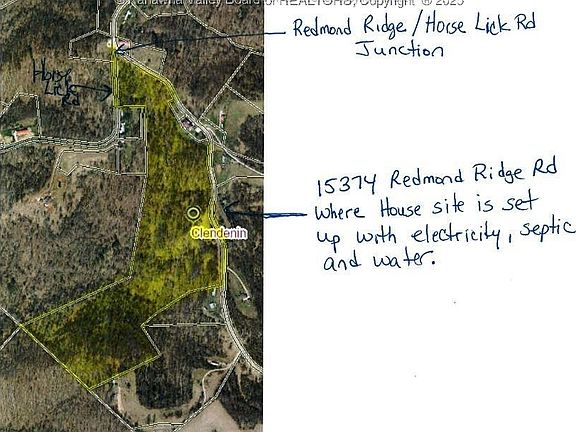 Kanawha Valley Board of REALTORS, Copyright © 2025
Redmond Ridge / Horse Lick Rd
Junction
Horse
Lick
Rd
15374 Redmond Ridge Rd
where House site is set
up with electricity, septic
and water.
Clendenin